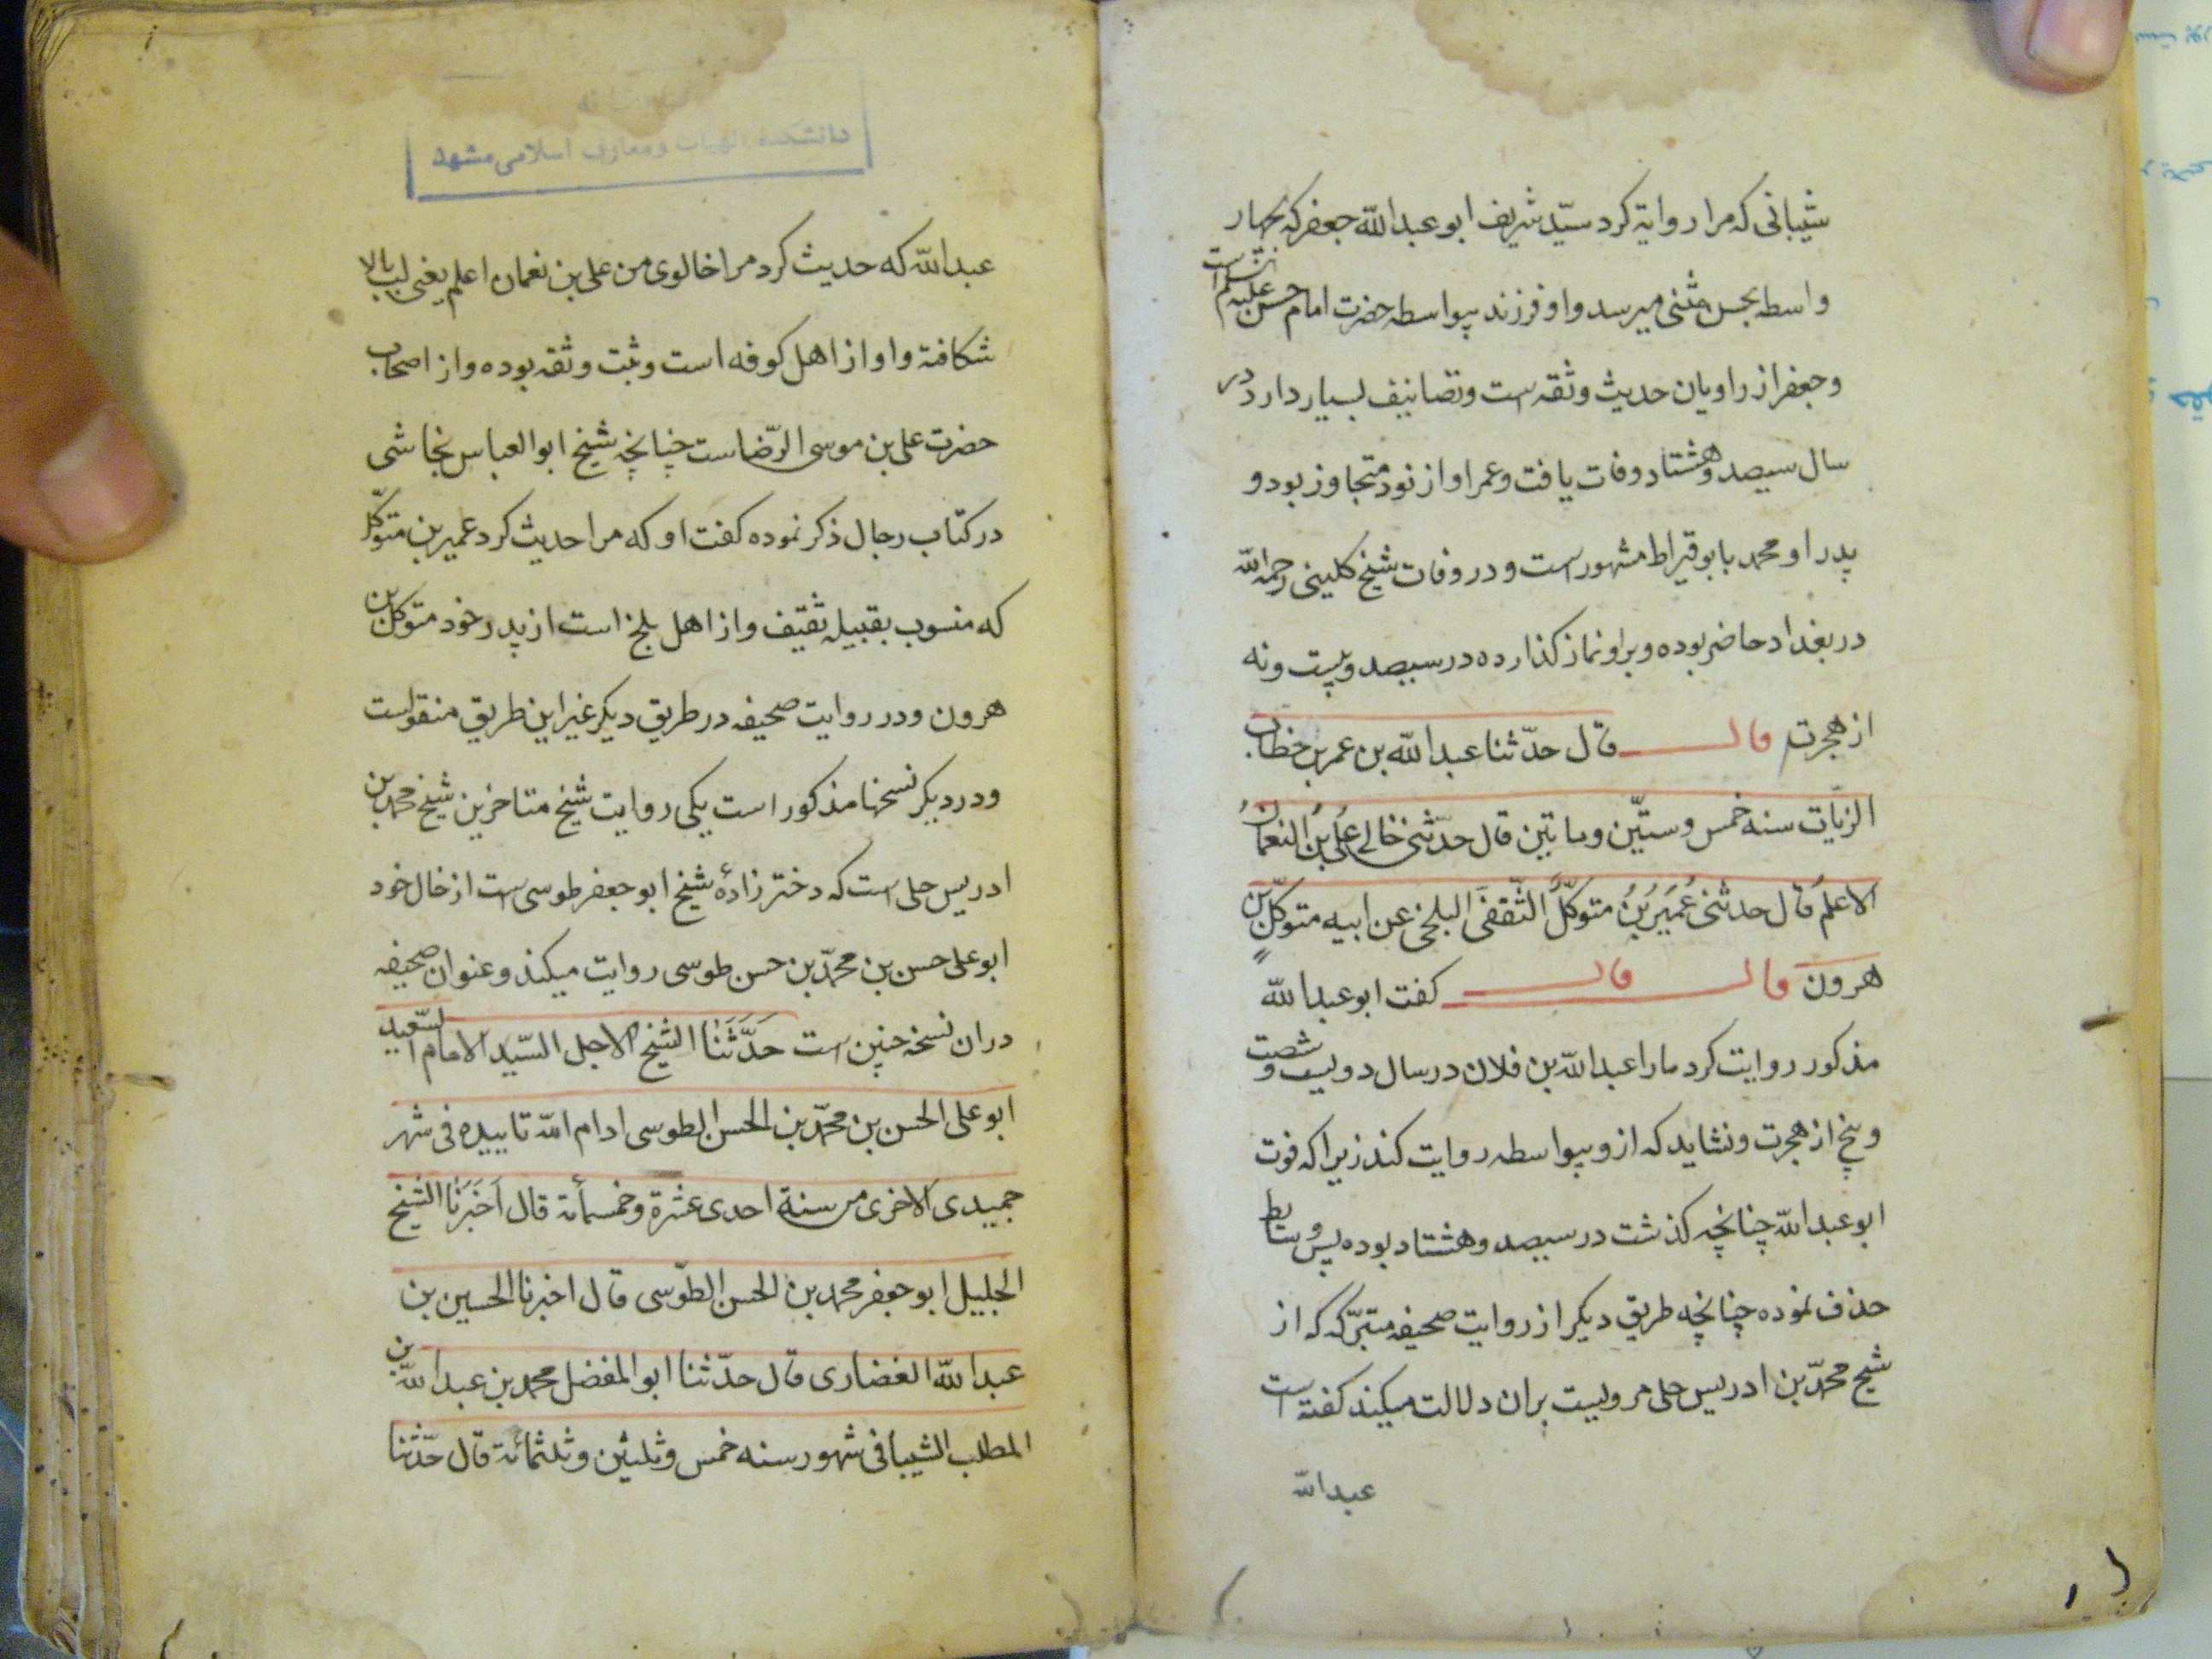 شیبانی که مرا روایة کرد سیّد شریف ابو عبد اللّه جعفر که بچهار
واسطه بحسن مثنی میرسد و او فرزند بیواسطه حضرت امام حسن علیه السلم است
و جعفر از راویان حدیث و ثقه است و تصانیف بسیار دارد در
سال سیصد و هشتاد وفات یافت و عمر او از نود متجاوز بود و
پدر او محمد بابو قیراط مشهور است و در وفات شیخ کلینی رحمه اللّه
در بغداد حاضر بوده و بر او نماز کذارده در سیصد و بیست و نه
از هجرت قال قال حدّثنا عبد اللّه بن عمر بن خطاب
الزیّات سنه خمس و ستّین و ماتین قال حدّثنی خالی علیُ بنُ النعمان
الاعلمُ قال حدثنی عُمَیرُ بنُ متوکّلُ الثّقفی البلخی عن ابیه متوکّل بن
هرون قال قال کفت ابو عبد اللّه
مذکور روایت کرد مارا عبد اللّه بن فلان در سال دویست و شصت
و پنج از هجرت و نشاید که از و بیواسطه روایت کند زیرا که فوت
ابو عبد اللّه چنانچه کذشت در سیصد و هشتاد بوده پس وسایط
حذف نموده چنانچه طریق دیکر از روایت صحیفه متبرّکه که از
شیخ محمّد بن ادریس حلی مرویست بران دلالت میکند کفته است
عبد اللّه
دانشکده الهیات و معارف اسلامی مشهد
عبد اللّه که حدیث کرد مرا خالوی من علی بن نعمان اعلم یعنی لب بالا
شکافته و او از اهل کوفه است و ثبت و ثقه بوده و از اصحاب
حضرت علی بن موسی الرّضاست چنانچه شیخ ابو العباس نجاشی
در کتاب رجال ذکر نموده کفت او که مرا حدیث کرد عمیر بن متوکّل
که منسوب بقبیله ثقیف و از اهل بلخ است از پدر خود متوکل بن
هرون و در روایت صحیفه در طریق دیکر غیر این طریق منقولست
و در دیکر نسخها مذکور است یکی روایت شیخ متاخرین شیخ محمد بن
ادریس حلی است که دختر زادهٔ شیخ ابو جعفر طوسی است از خال خود
ابو علی حسن بن محمّد بن حسن طوسی روایت میکند و عنوان صحیفه
دران نسخه چنین است حَدَّثَنَا الشیخ الاجل السّید الامام السّعید
ابو علی الحسن بن محمّد بن الحسن الطوسی ادام اللّه تاییده فی شهر
جمیدی الاخری من سنة احدی عشرة و خمسمأئة قال اَخبَرَنَا الشیخ
الجلیل ابو جعفر محمد بن الحسن الطّوسی قال اخبرنا الحسین بن
عبد اللّه الغضاری قال حدّثنا ابو المفضل محمد بن عبد اللّه بن
المطلب الشیبانی شهور سنه خمس و ثلثین و ثلثمائة قال حدّثنا